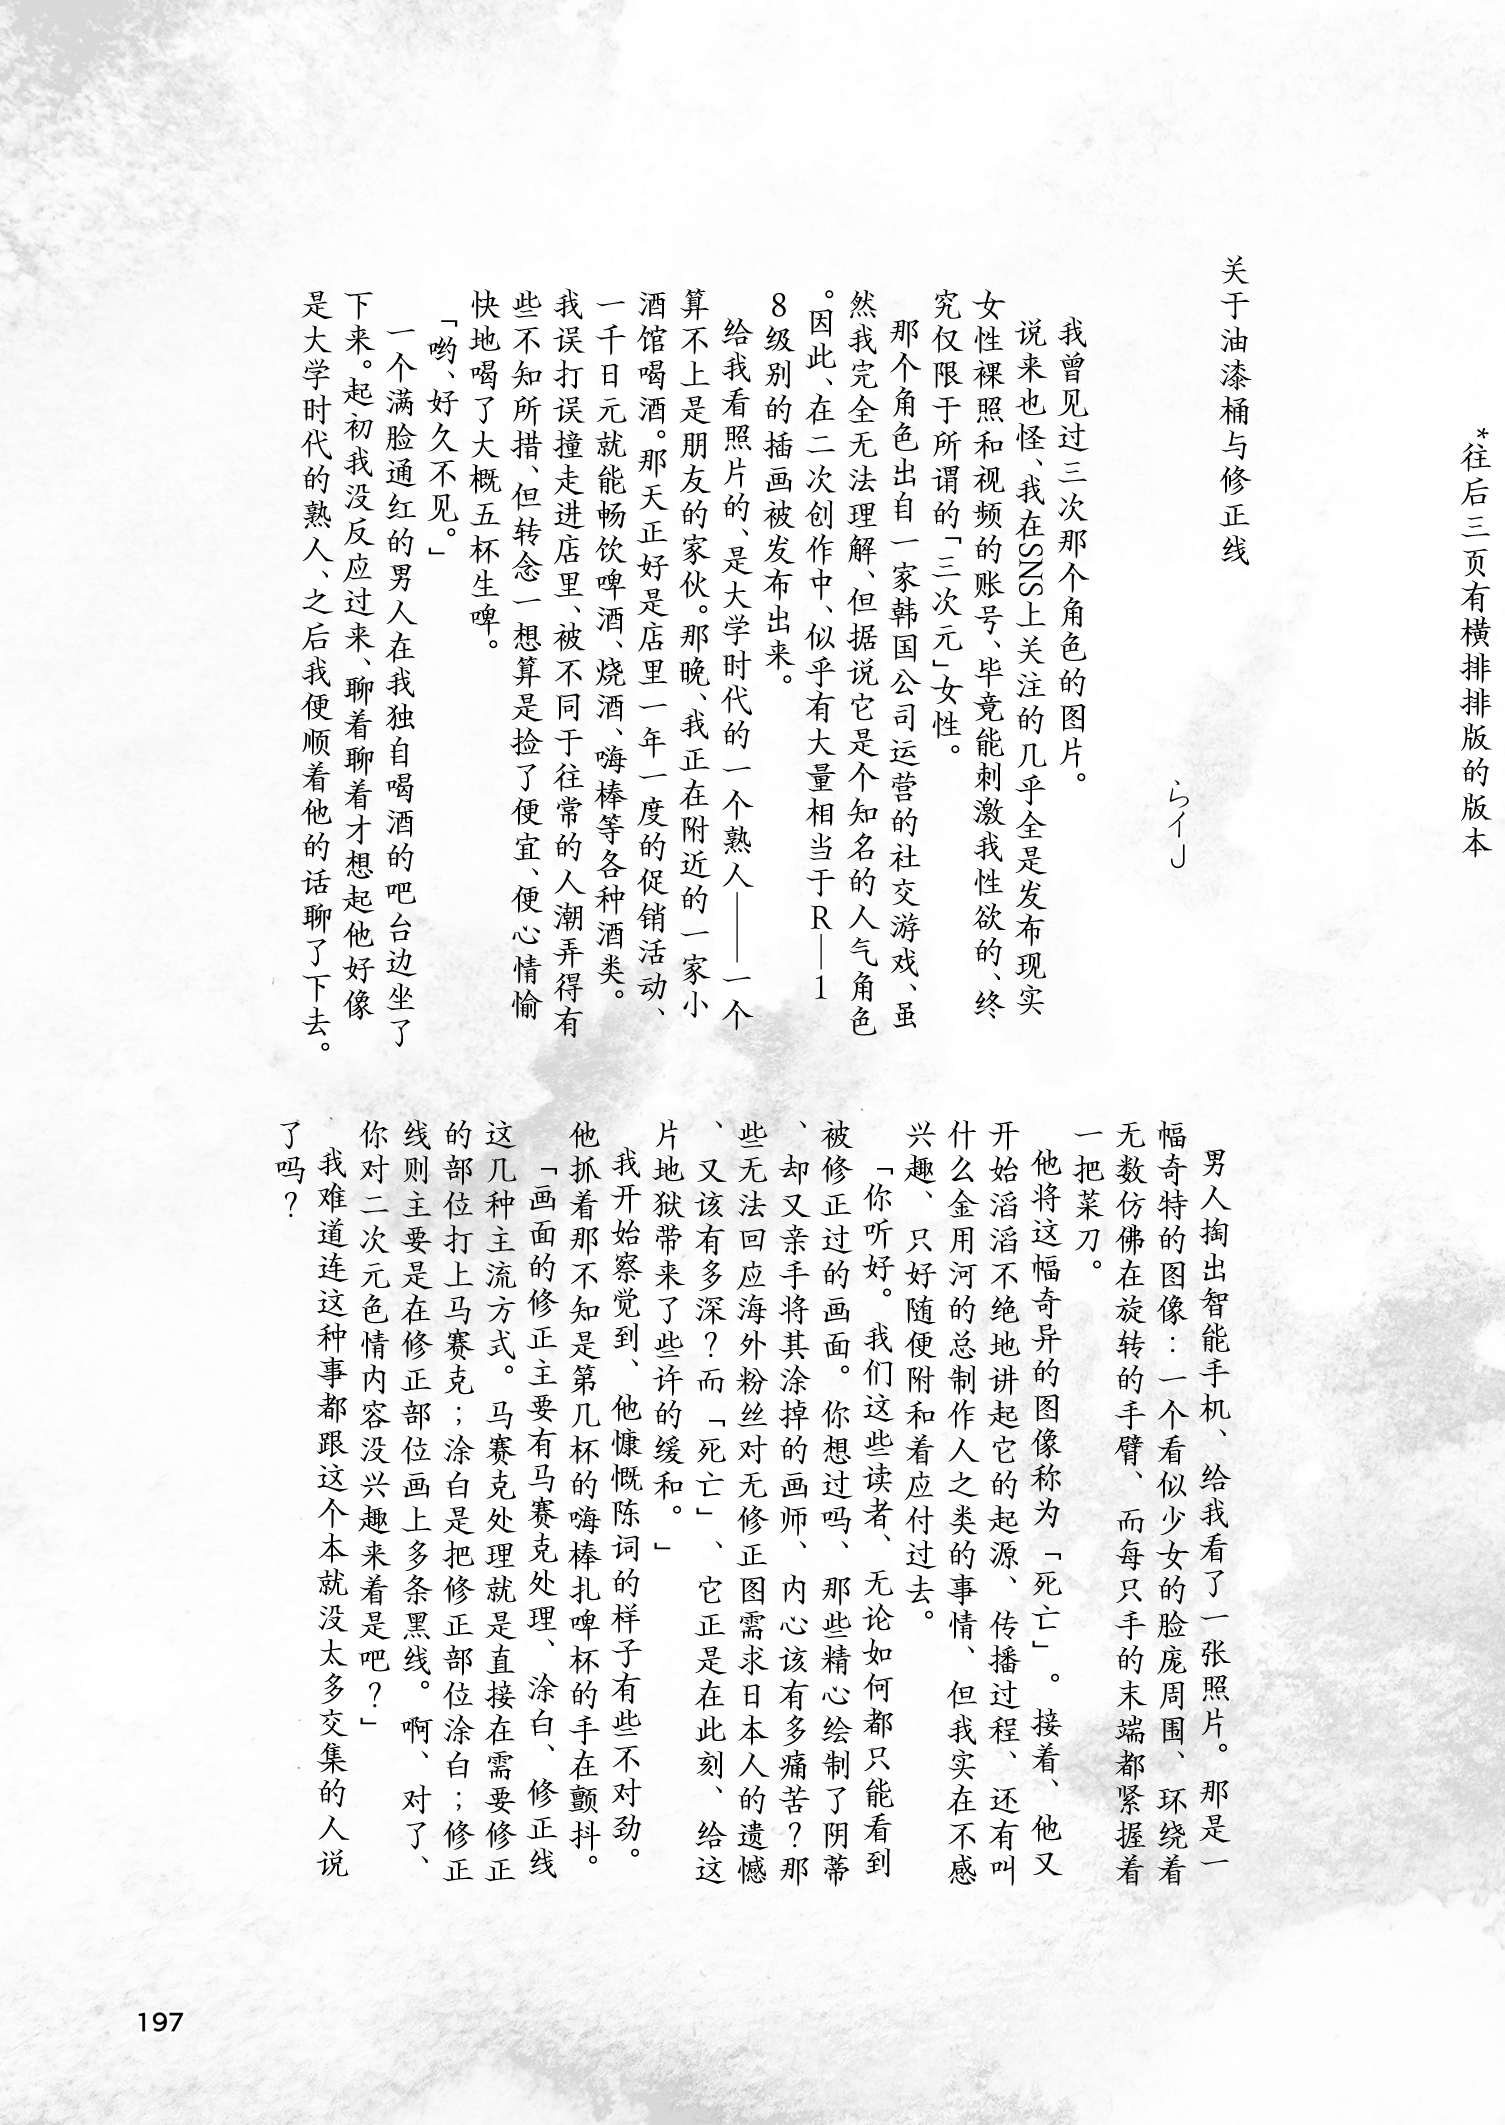 *往后三页有横排排版的版本
关于油漆桶与修正线
らイJ
我曾见过三次那个角色的图片。
说来也怪、我在SNS上关注的几乎全是发布现实
女性裸照和视频的账号、毕竟能刺激我性欲的、终
究仅限于所谓的「三次元」女性。
那个角色出自一家韩国公司运营的社交游戏、虽
然我完全无法理解、但据说它是个知名的人气角色
。因此、在二次创作中、似乎有大量相当于R—1
8级别的插画被发布出来。
给我看照片的、是大学时代的一个熟人——一个
算不上是朋友的家伙。那晚、我正在附近的一家小
酒馆喝酒。那天正好是店里一年一度的促销活动、
一千日元就能畅饮啤酒、烧酒、嗨棒等各种酒类。
我误打误撞走进店里、被不同于往常的人潮弄得有
些不知所措、但转念一想算是捡了便宜、便心情愉
快地喝了大概五杯生啤。
「哟、好久不见。」
一个满脸通红的男人在我独自喝酒的吧台边坐了
下来。起初我没反应过来、聊着聊着才想起他好像
是大学时代的熟人、之后我便顺着他的话聊了下去。
男人掏出智能手机、给我看了一张照片。那是一
幅奇特的图像：一个看似少女的脸庞周围、环绕着
无数仿佛在旋转的手臂、而每只手的末端都紧握着
一把菜刀。
他将这幅奇异的图像称为「死亡」。接着、他又
开始滔滔不绝地讲起它的起源、传播过程、还有叫
什么金用河的总制作人之类的事情、但我实在不感
兴趣、只好随便附和着应付过去。
「你听好。我们这些读者、无论如何都只能看到
被修正过的画面。你想过吗、那些精心绘制了阴蒂
、却又亲手将其涂掉的画师、内心该有多痛苦？那
些无法回应海外粉丝对无修正图需求日本人的遗憾
、又该有多深？而「死亡」、它正是在此刻、给这
片地狱带来了些许的缓和。」
我开始察觉到、他慷慨陈词的样子有些不对劲。
他抓着那不知是第几杯的嗨棒扎啤杯的手在颤抖。
「画面的修正主要有马赛克处理、涂白、修正线
这几种主流方式。马赛克处理就是直接在需要修正
的部位打上马赛克；涂白是把修正部位涂白；修正
线则主要是在修正部位画上多条黑线。啊、对了、
你对二次元色情内容没兴趣来着是吧？」
我难道连这种事都跟这个本就没太多交集的人说
了吗？
197